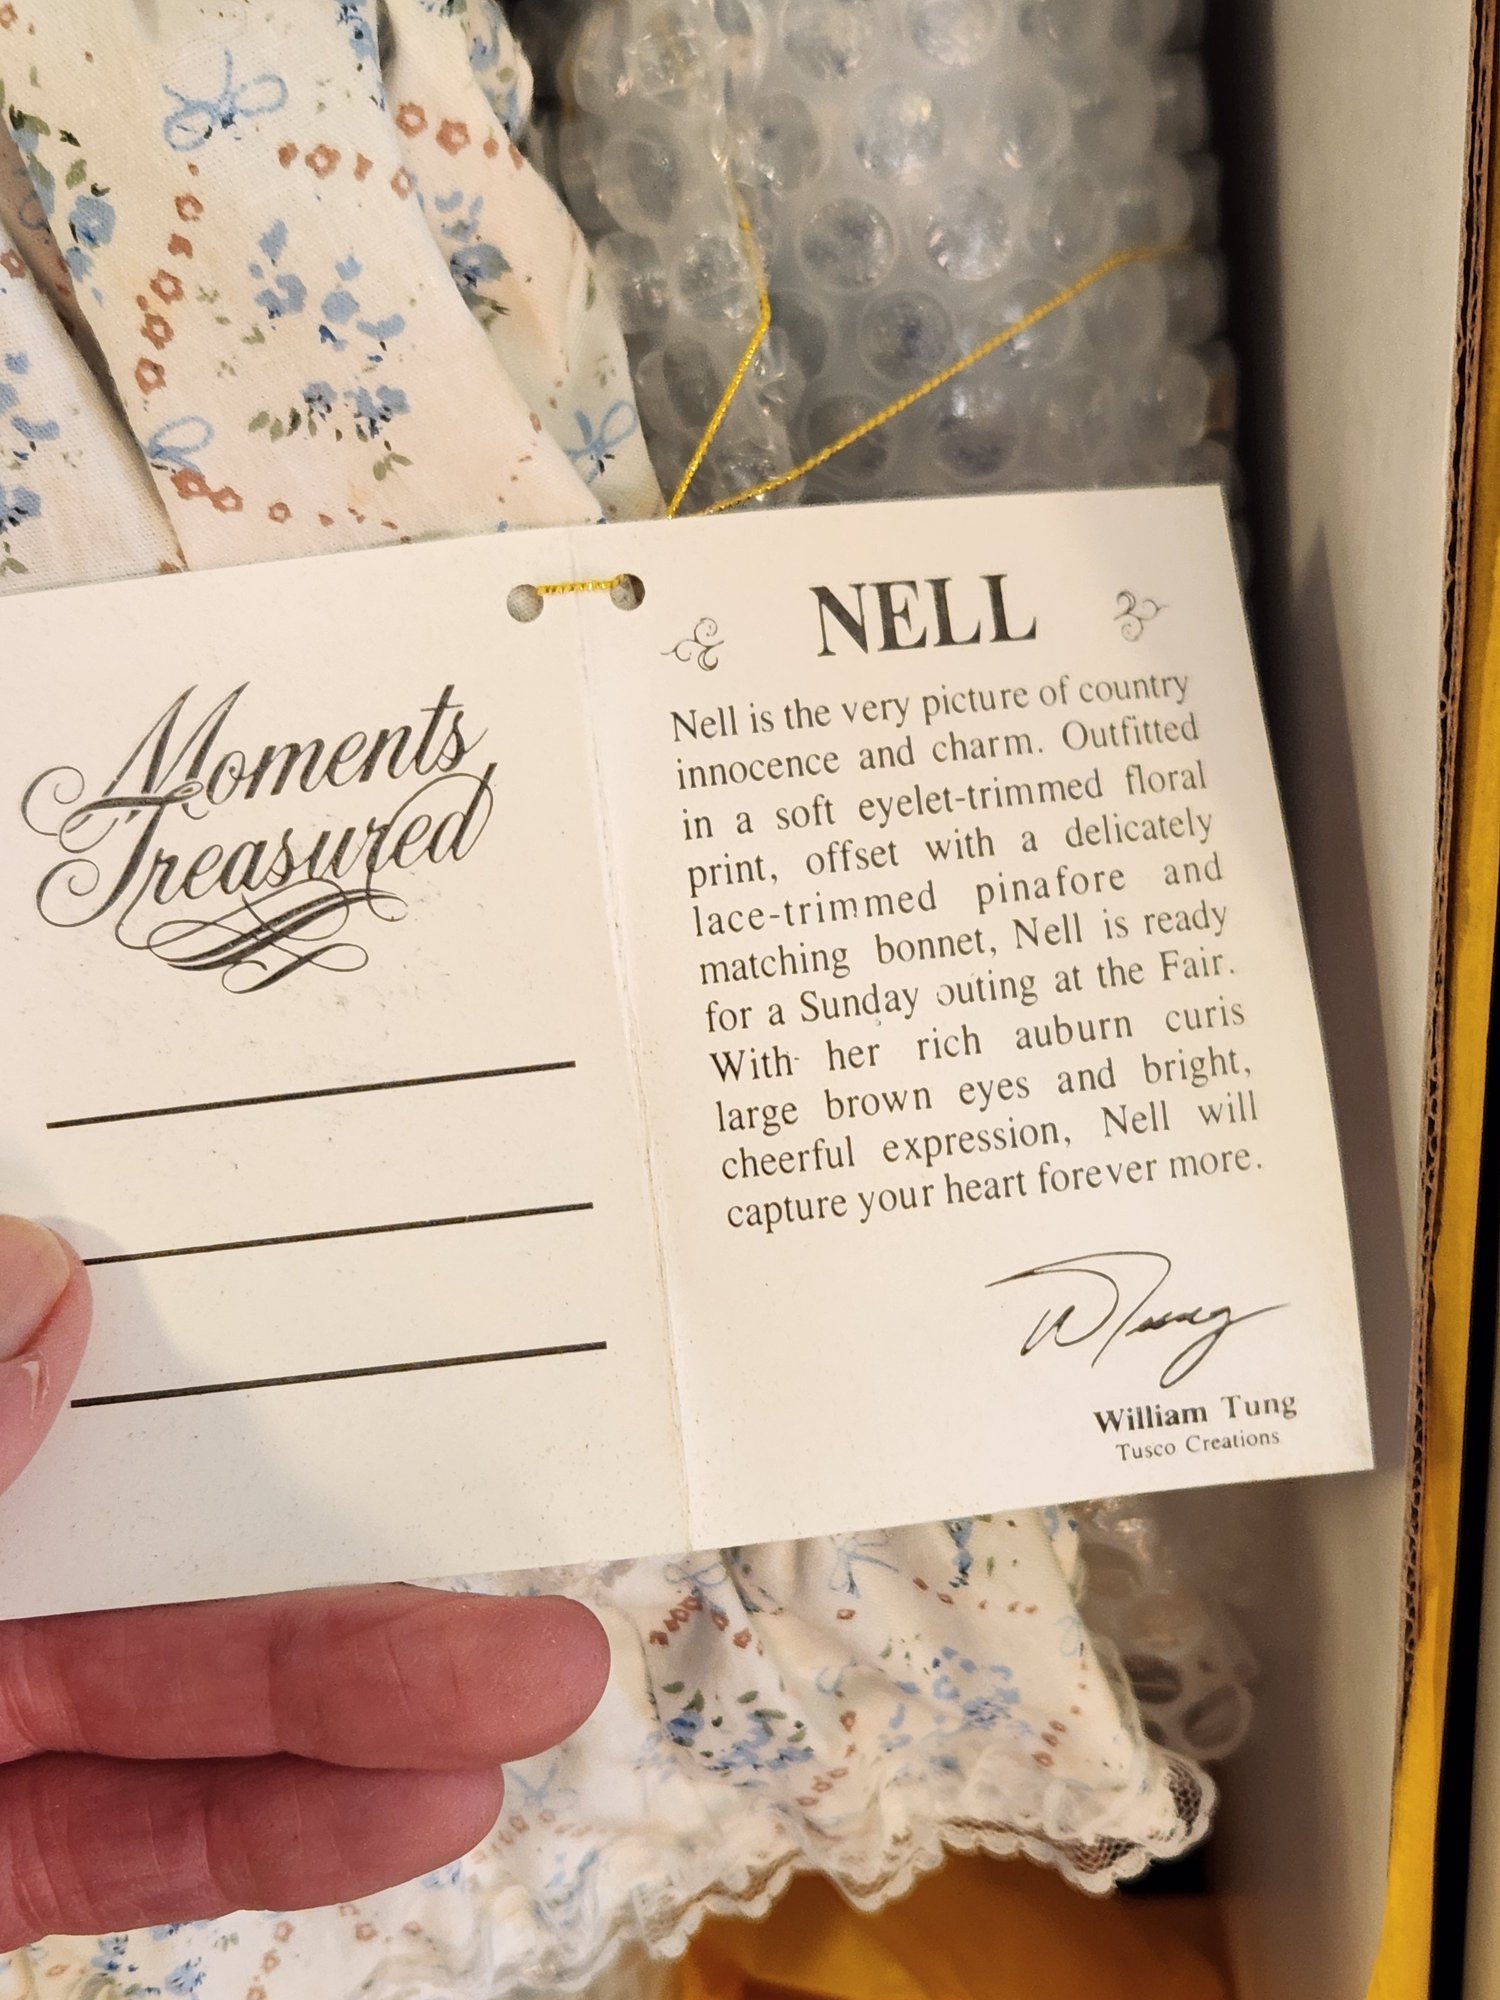 Moments
Treasured
NELL
Nell is the very picture of country
innocence and charm. Outfitted
in a soft eyelet-trimmed floral
print, offset with a delicately
lace-trimmed pinafore and
matching bonnet, Nell is ready
for a Sunday outing at the Fair.
With her rich auburn curis
large brown eyes and bright,
cheerful expression, Nell will
capture your heart forever more.
W Tung
William Tung
Tusco Creations